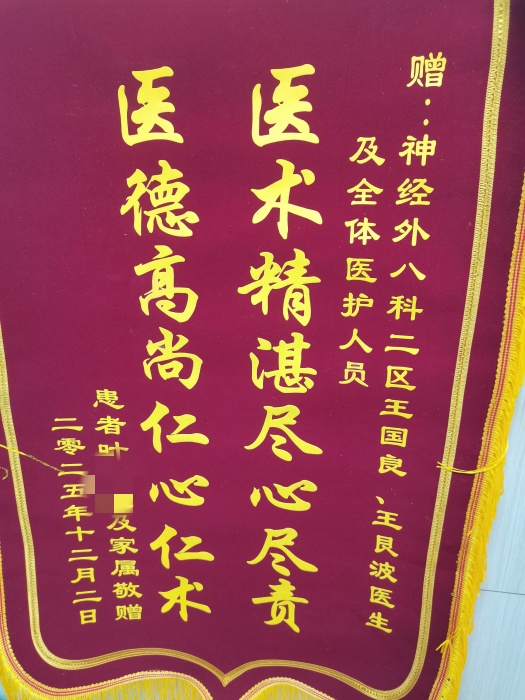 赠：神经外八科二区王国良、王艮波医生
及全体医护人员
医术精湛尽心尽责
医德高尚仁心仁术
患者叶及家属敬赠
二零二五年十二月二日